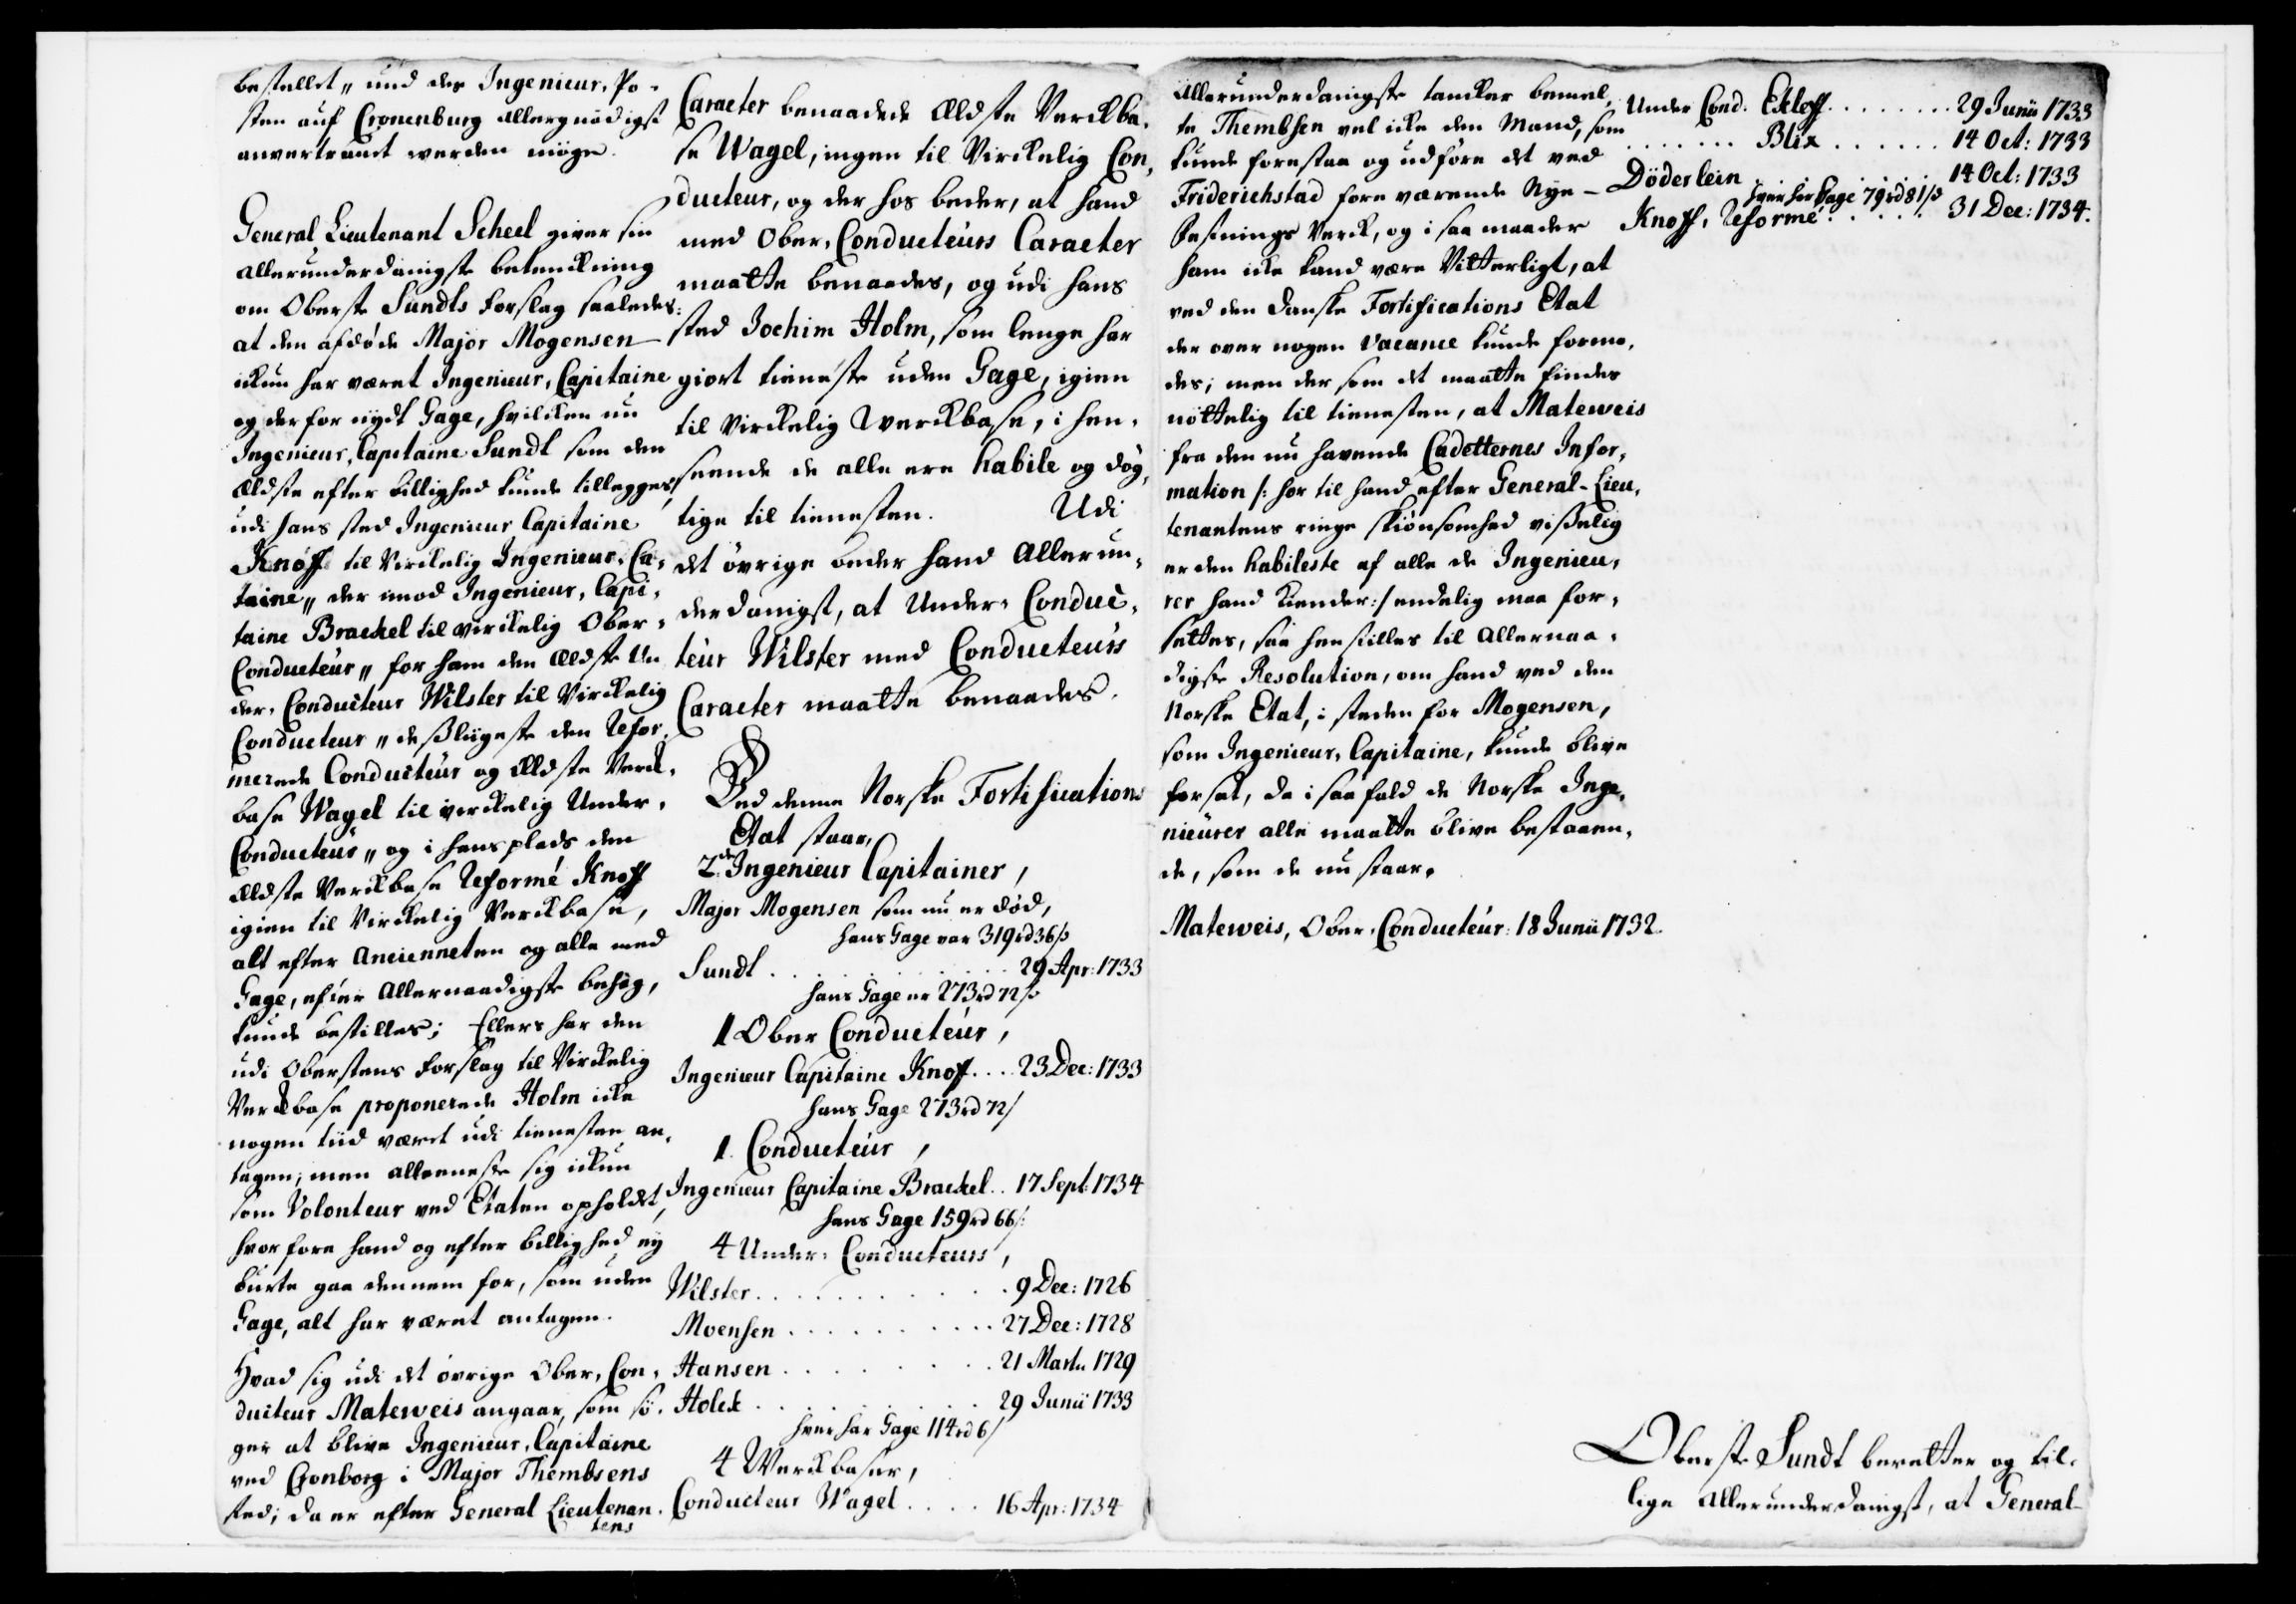 bestellet„ und der Ingenieur, Po-
sten auf Cronenburg allergnädigst
anvertrauet werden möge.
General Lieutenant Scheel giver sin
allerunderdanigste betenckning
om Oberste Sundts forslag saaledes:
at den afdöde Major Mogensen
ickun har været Ingenieur, Capitaine
og derfor nydt Gage, hvilcken nu
Ingenieur, Capitaine Sundt som den
Ældste efter billighed kunde tillegges,
udi hans sted Ingenieur Capitaine
Knoff til Virckelig Ingenieur, Ca-
taine„ der imod Ingenieur, Capi-
taine Brackel til virckelig Ober-
Conducteur„ for ham den Ældste Un
der, Conducteur Wilster til Virckelig
Conducteur„ desligeste den Refor-
merede Conducteur og Ældste Verck-
base Wagel til virckelig Under-
Conducteur„ og i hans plads den
Ældste Verckbase Reformé Knoff
igien til Virckelig Verckbase,
alt efter Ancienneten og alle med
Gage, efter Allernaadigste behag,
kunde bestilles; Ellers har den
udi Oberstens forslag til Virckelig
Verckbase proponerede Holm icke
nogen tiid været udi tienesten an-
tagen; men alleeneste sig ickun
som Volonteur ved Etaten opholdet,
hvorfore hand og efter billighed ey
burte gaa dennem for, som uden
Gage, alt har været antagen.
Hvad sig udi det övrige Ober, Con-
ducteur Mateweis angaar, som sö-
ger at blive Ingenieur, Capitaine
ved Cronborg i Major Thembsens
sted; da er efter General Lieutenan-
tens
Caracter benaadede Ældste Verckba-
se Wagel, ingen til Virckelig Con-
ducteur, og der hos beder, at hand
med Ober, Conducteurs Caracter
maatte benaades, og udi hans
sted Jochim Holm, som lenge har
giort tieneste uden Gage, igien
til Virckelig Werckbase, i hen-
seende de alle ere habile og dög-
tige til tienesten. Udi
det övrige beder hand Allerun-
derdanigst, at Under-Conduc-
teur Wilster med Conducteurs
Caracter maatte benaades.
Ved denne Norske Fortifications
Etat staar,
2de Ingenieur Capitainer,
Major Mogensen som nu er död,
hans Gage var 319 rd 36 ß
Sundt . . . . . . . . 29 Apr: 1733
hans Gage er 273 rd 72 ß
1 Ober Conducteur,
Ingenieur Capitaine Knoff . . . 23 Dec: 1733
hans Gage 273 rd 72 ß
1. Conducteur,
Ingenieur Capitaine Brackel . . 17 Sept: 1734
hans Gage 159 rd 66 ß
4 Under-Conducteurs,
Wilster . . . . . . . . 9 Dec: 1726
Moensen . . . . . . . . 27 Dec: 1728
Hansen . . . . . . . . 21 Martii 1729
Holck . . . . . . . . 29 Junii 1733
hver har Gage 114 rd 6 ß
4 Werckbaser,
Conducteur Wagel . . . . 16 Apr: 1734
Allerunderdanigste tancker bemel-
te Thembsen vel icke den Mand, som
kunde forestaa og udföre det ved
Friderichstad fore værende Nye-
Festnings Verck, og i saa maader
ham icke kand være Vitterligt, at
ved den danske Fortifications Etat
der over nogen Vacance kunde forme-
des; men der som det maatte findes
nöttelig til tienesten, at Mateweis
fra den nu havende Cadetternes Infor-
mation /: hor til hand efter General-Lieu-
tenantens ringe skiönsomhed visselig
er den habileste af alle de Ingenieu-
rer hand kiender :/ endelig maa for-
settes, saa henstilles til Allernaa-
digste Resolution, om hand ved den
Norske Etat, i steden for Mogensen,
som Ingenieur, Capitaine, kunde blive
forsat, da i saa fald de Norske Inge-
nieurer alle maatte blive bestaaen-
de, som de nu staar.
Mateweis, Ober, Conducteur: 18 Junii 1732.
Under Cond. Etleff . . . . . . . 29 Junii 1733
. . . . . . Blix . . . . . . 14 Oct: 1733
Döderlein . . . . . 14 Oct: 1733
hver har Gage 79 rd 81 ß
Knoff, Reformé . . . . . 31 Dec: 1734.
Oberste Sundt beretter og til-
lige allerunderdanigst, at General-